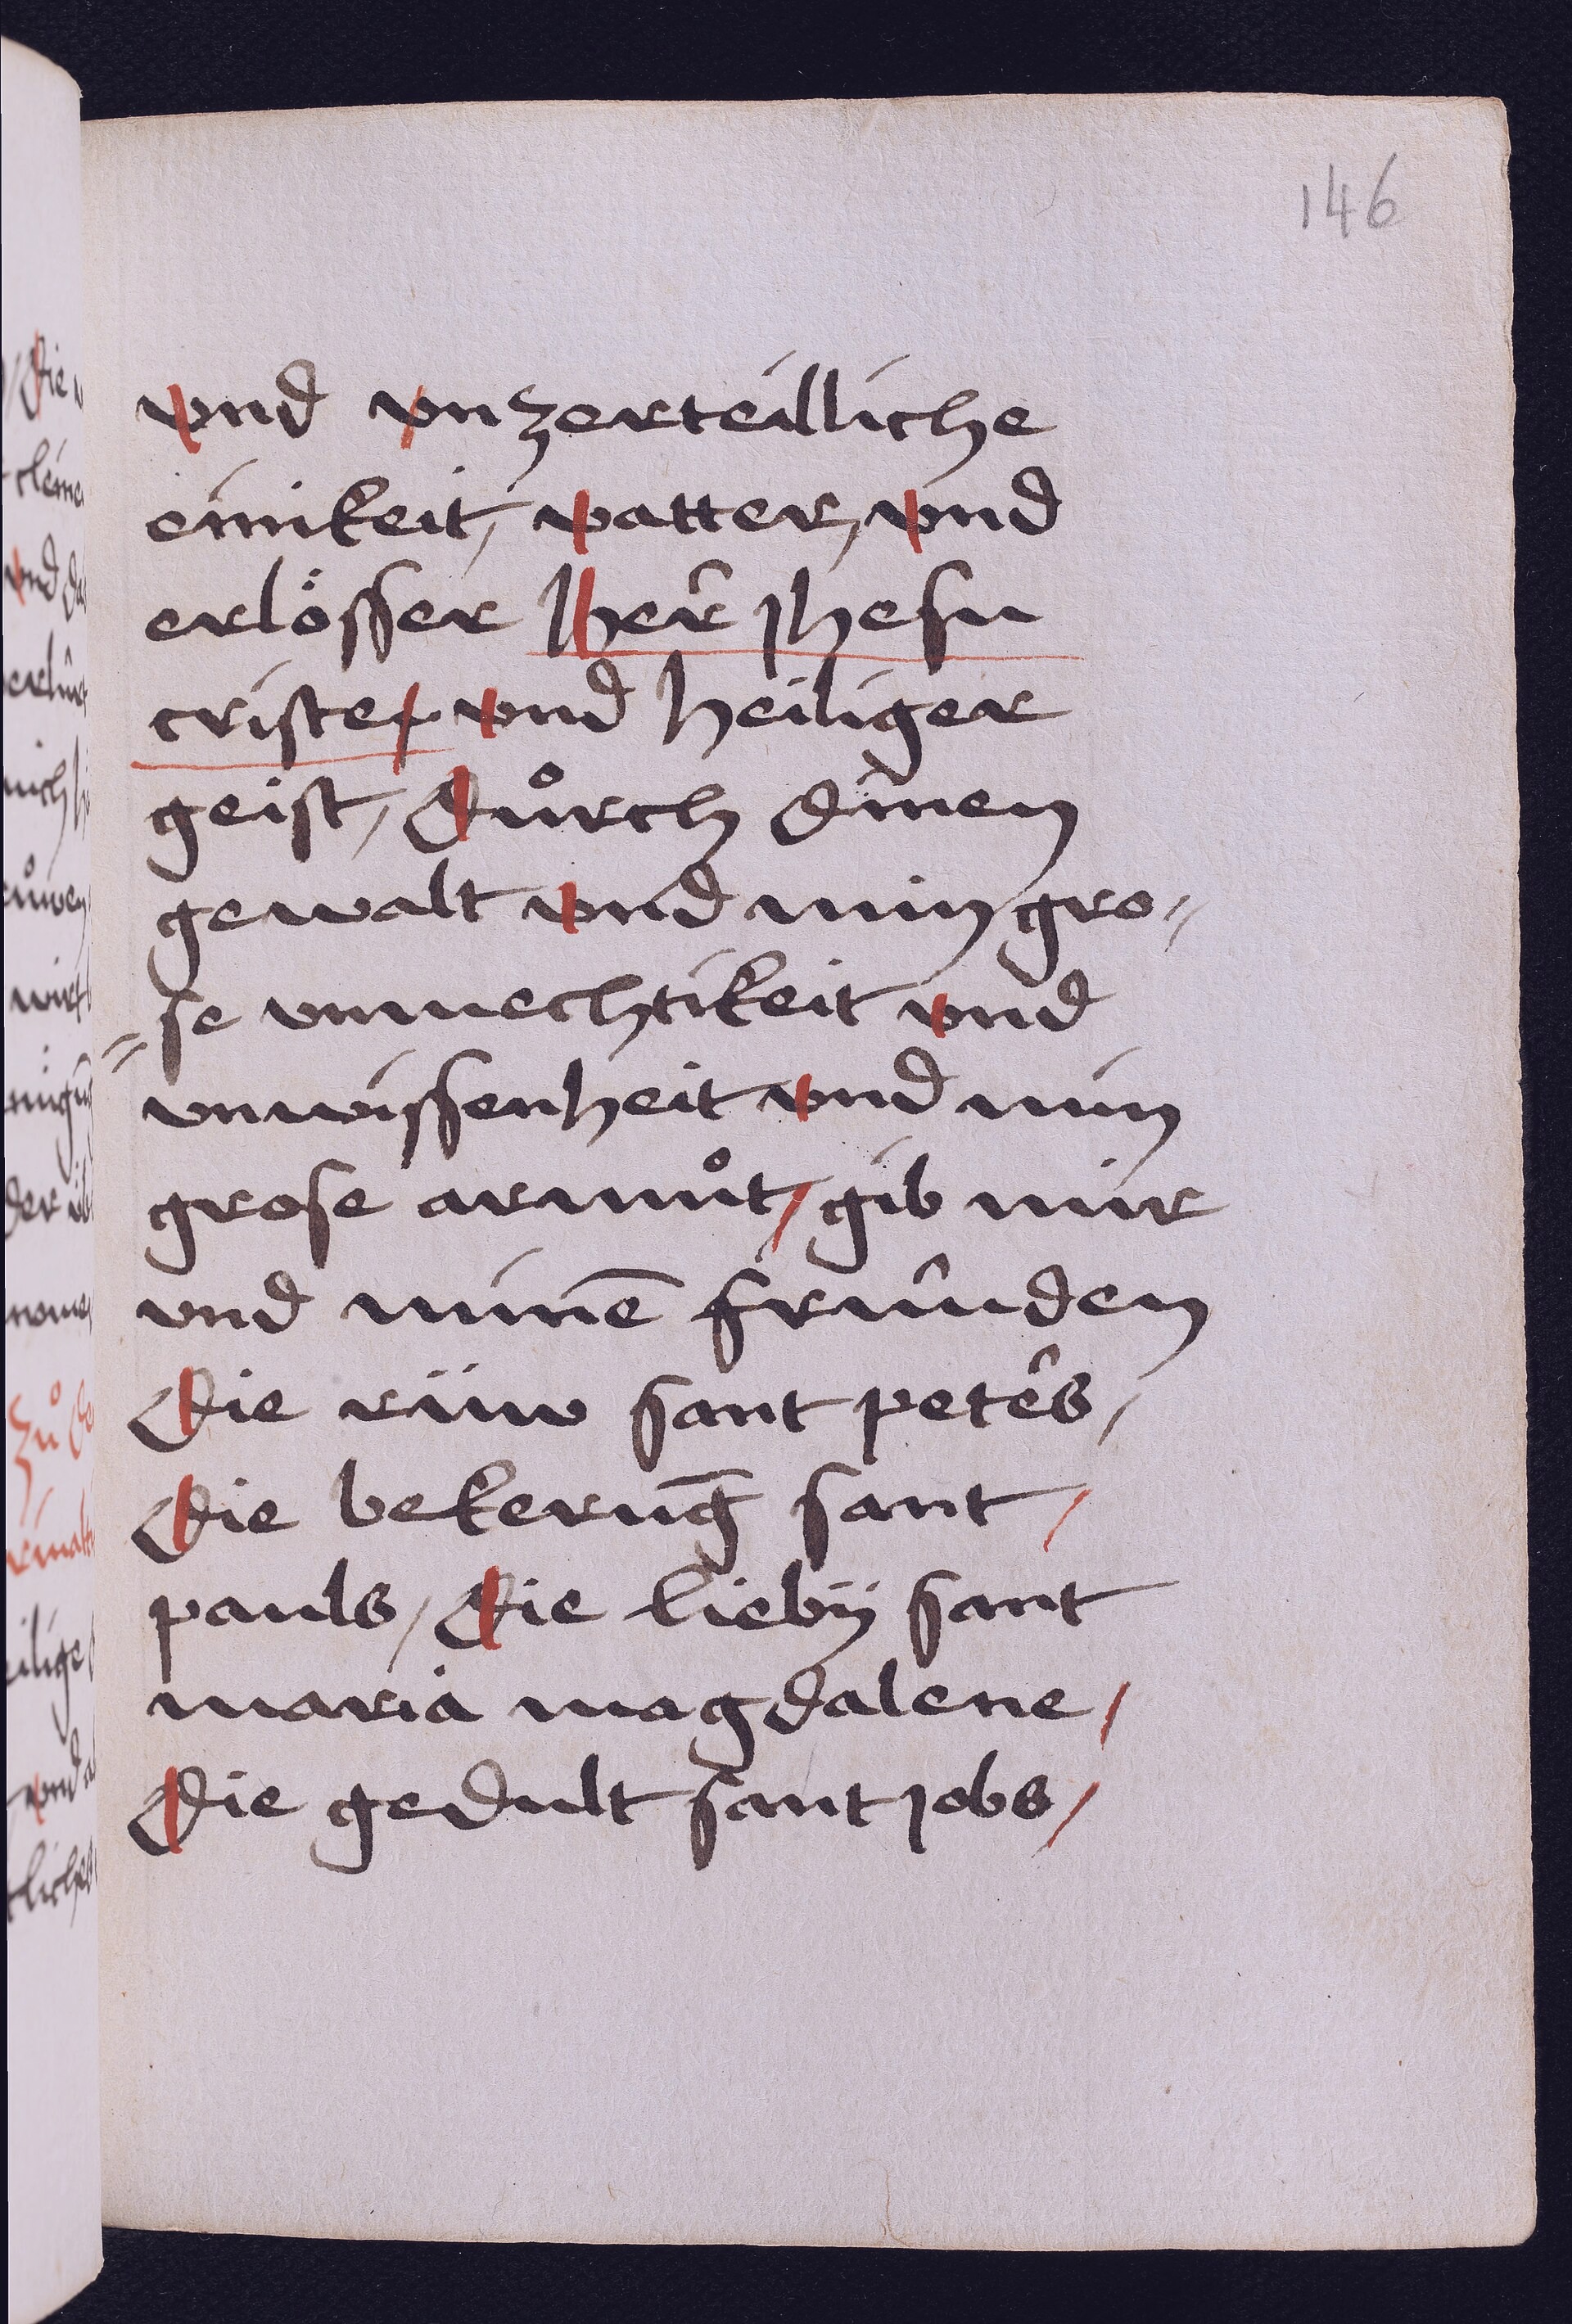 146
vnd vnzerteilliche
einikeit, vatter, vnd
erlösser her̂ Jhesu
criste, vnd heiliger
geist, důrch dinen
gewalt vnd min gro„
„se vnmechtikeit vnd
vnwissenheit vnd min
grose armůt, gib mir
vnd minē frûnden
Die rüw sant petês,
Die bekerūg sant,
pauls, Die liebÿ sant
maria magdalene,
Die gedult sant Jobs,